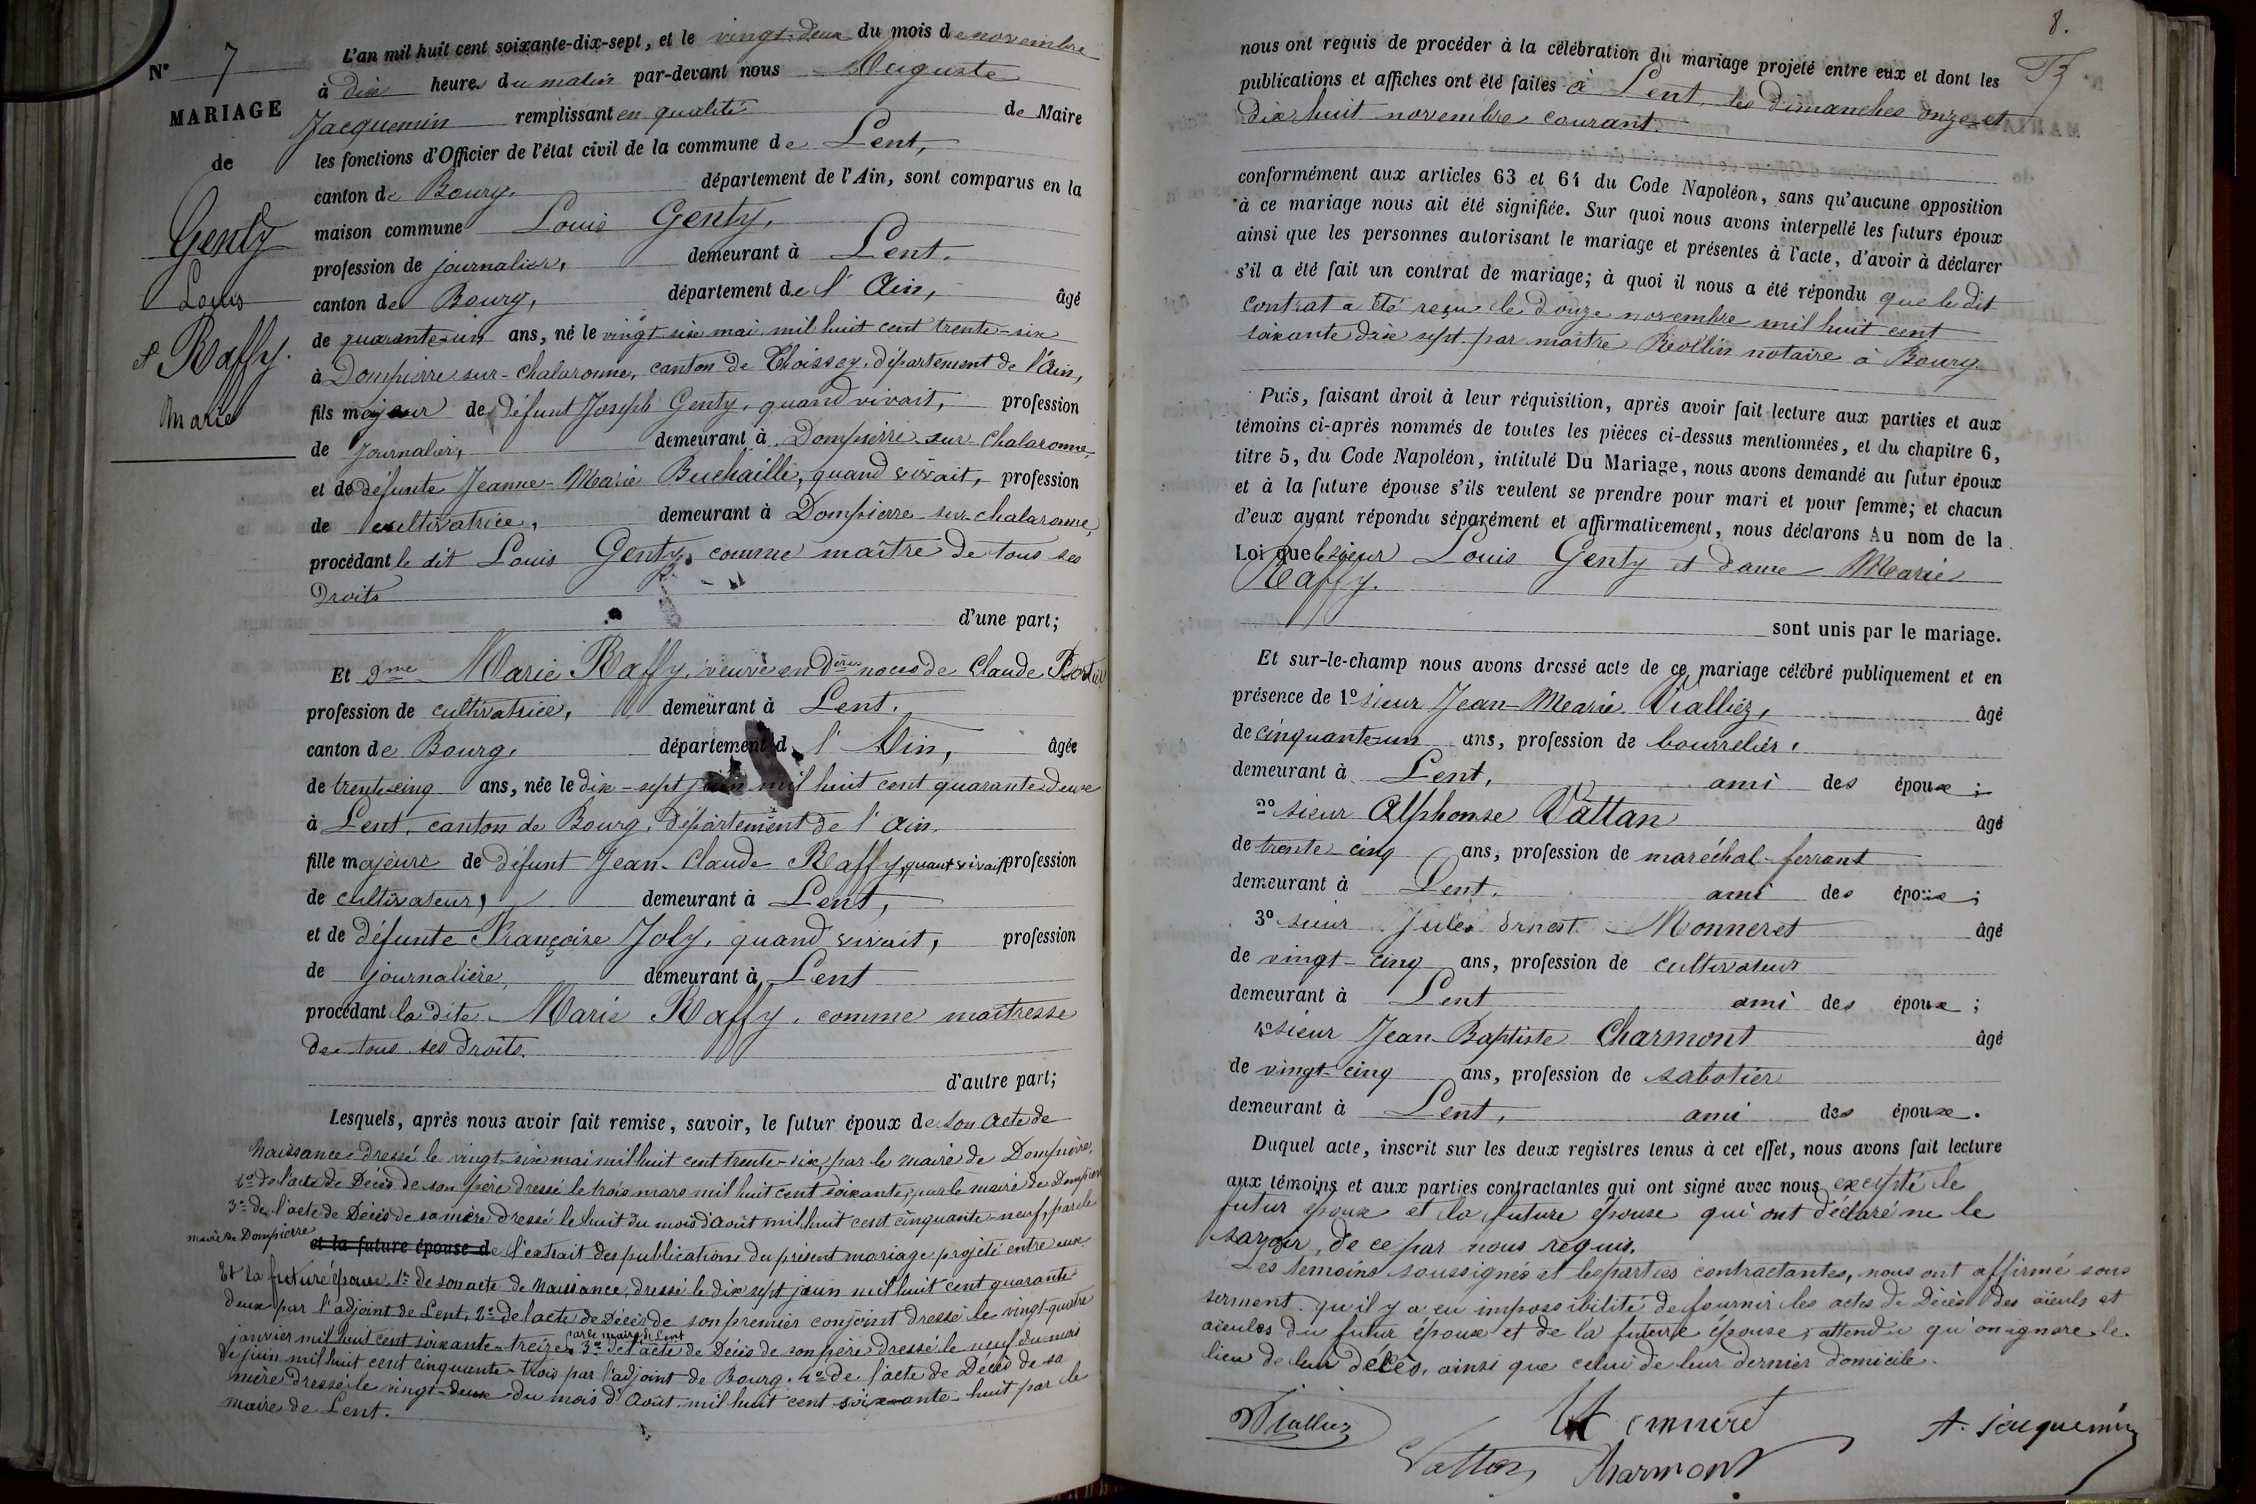 N° 7
MARIAGE
de
Genty
Louis
et Raffy.
Marie
L'an mil huit cent soixante-dix-sept, et le vingt-deux du mois de novembre
à dix heures du matin par-devant nous Auguste
Jacquemin remplissant en qualité de Maire
les fonctions d'Officier de l'état civil de la commune de Lent,
canton de Bourg. département de l'Ain, sont comparus en la
maison commune Louis Genty,
profession de journalier, demeurant à Lent.
canton de Bourg, département de l'Ain, âgé
de quarante-un ans, né le vingt-six mai mil huit cent trente-six
à Dompierre-sur-chalaronne, canton de Thoissey, département de l'Ain,
fils majeur de défunt Joseph Genty, quand vivait, profession
de Journalier, demeurant à Dompierre-sur-Chalaronne,
et de défunte Jeanne-Marie Buchaille, quand vivait, profession
de cultivatrice, demeurant à Dompierre-sur-chalaronne,
procédant le dit Louis Genty, comme maître de tous ses
Droits
d'une part;
Et Dme Marie Raffy, veuve en noces de Claude
profession de cultivatrice, demeurant à Lent.
canton de Bourg, département d l'Ain, âgée
de trente-cinq ans, née le dix-sept juin mil huit cent quarante-deux
à Lent, canton de Bourg, département de l'Ain.
fille majeure de défunt Jean-Claude Raffy, quant vivait profession
de cultivateur, demeurant à Lent,
et de défunte Françoise Joly, quand vivait, profession
de journalière, demeurant à Lent
procédant la dite Marie Raffy, comme maîtresse
de tous ses droits.
d'autre part;
Lesquels, après nous avoir fait remise, savoir, le futur époux de son acte de
Naissance dressé le vingt-six mai mil huit cent trente-six, par le maire de Dompierre,
2° de l'acte de Décès de son père dressé le trois mars mil huit cent soixante, par le maire de Dompierre
3° de l'acte de Décès de sa mère dressé le huit du mois d'août mil huit cent cinquante-neuf, par le
maire de Dompierre et la future épouse de l'extrait des publications du présent mariage projeté entre eux
Et la future épouse 1° de son acte de Naissance, dressé le dix sept juin mil huit cent quarante
deux par l'adjoint de Lent, 2° de l'acte de Décès de son premier conjoint dressé le vingt-quatre
janvier mil huit cent soixante-treize par le maire de Lent 3° de l'acte de Décès de son père dressé le neuf du mois
de juin mil huit cent cinquante-trois par l'adjoint de Bourg. 4° de l'acte de Décès de sa
mère dressé le vingt-deux du mois d'Août mil huit cent soixante-huit par le
maire de Lent.
8.
nous ont requis de procéder à la célébration du mariage projeté entre eux et dont les
publications et affiches ont été faites à Lent, les dimanches onze et
dix-huit novembre courant.
conformément aux articles 63 et 64 du Code Napoléon, sans qu'aucune opposition
à ce mariage nous ait été signifiée. Sur quoi nous avons interpellé les futurs époux
ainsi que les personnes autorisant le mariage et présentes à l'acte, d'avoir à déclarer
s'il a été fait un contrat de mariage; à quoi il nous a été répondu que le dit
contrat a été reçu le douze novembre mil huit cent
soixante dix sept par maître notaire à Bourg.
Puis, faisant droit à leur réquisition, après avoir fait lecture aux parties et aux
témoins ci-après nommés de toutes les pièces ci-dessus mentionnées, et du chapitre 6,
titre 5, du Code Napoléon, intitulé Du Mariage, nous avons demandé au futur époux
et à la future épouse s'ils veulent se prendre pour mari et pour femme; et chacun
d'eux ayant répondu séparément et affirmativement, nous déclarons Au nom de la
Loi que le sieur Louis Genty et dame Marie
Raffy.
sont unis par le mariage.
Et sur-le-champ nous avons dressé acte de ce mariage célébré publiquement et en
présence de 1° sieur Jean-Marie Vialliez, âgé
de cinquante-un ans, profession de bourrelier,
demeurant à Lent, ami des époux;
2° sieur Alphonse Vattan âgé
de trente cinq ans, profession de maréchal-ferrant
demeurant à Lent, ami des époux;
3° sieur Jules Ernest Monneret âgé
de vingt-cinq ans, profession de cultivateur
demeurant à Lent ami des époux;
4° sieur Jean-Baptiste Charmont âgé
de vingt-cinq ans, profession de sabotier
demeurant à Lent, ami des époux.
Duquel acte, inscrit sur les deux registres tenus à cet effet, nous avons fait lecture
aux témoins et aux parties contractantes qui ont signé avec nous excepté le
futur époux et la future épouse qui ont déclaré ne le
savoir, de ce par nous requis.
Les témoins soussignés et les parties contractantes, nous ont affirmé sous
serment qu'il y a eu impossibilité de fournir les actes de Décès des aïeuls et
aïeules du futur époux et de la future épouse, attendu qu'on ignore le
lieu de leur décès, ainsi que celui de leur dernier domicile.
Vialliez
Monneret
A. Jacquemin
Vattan
Charmont